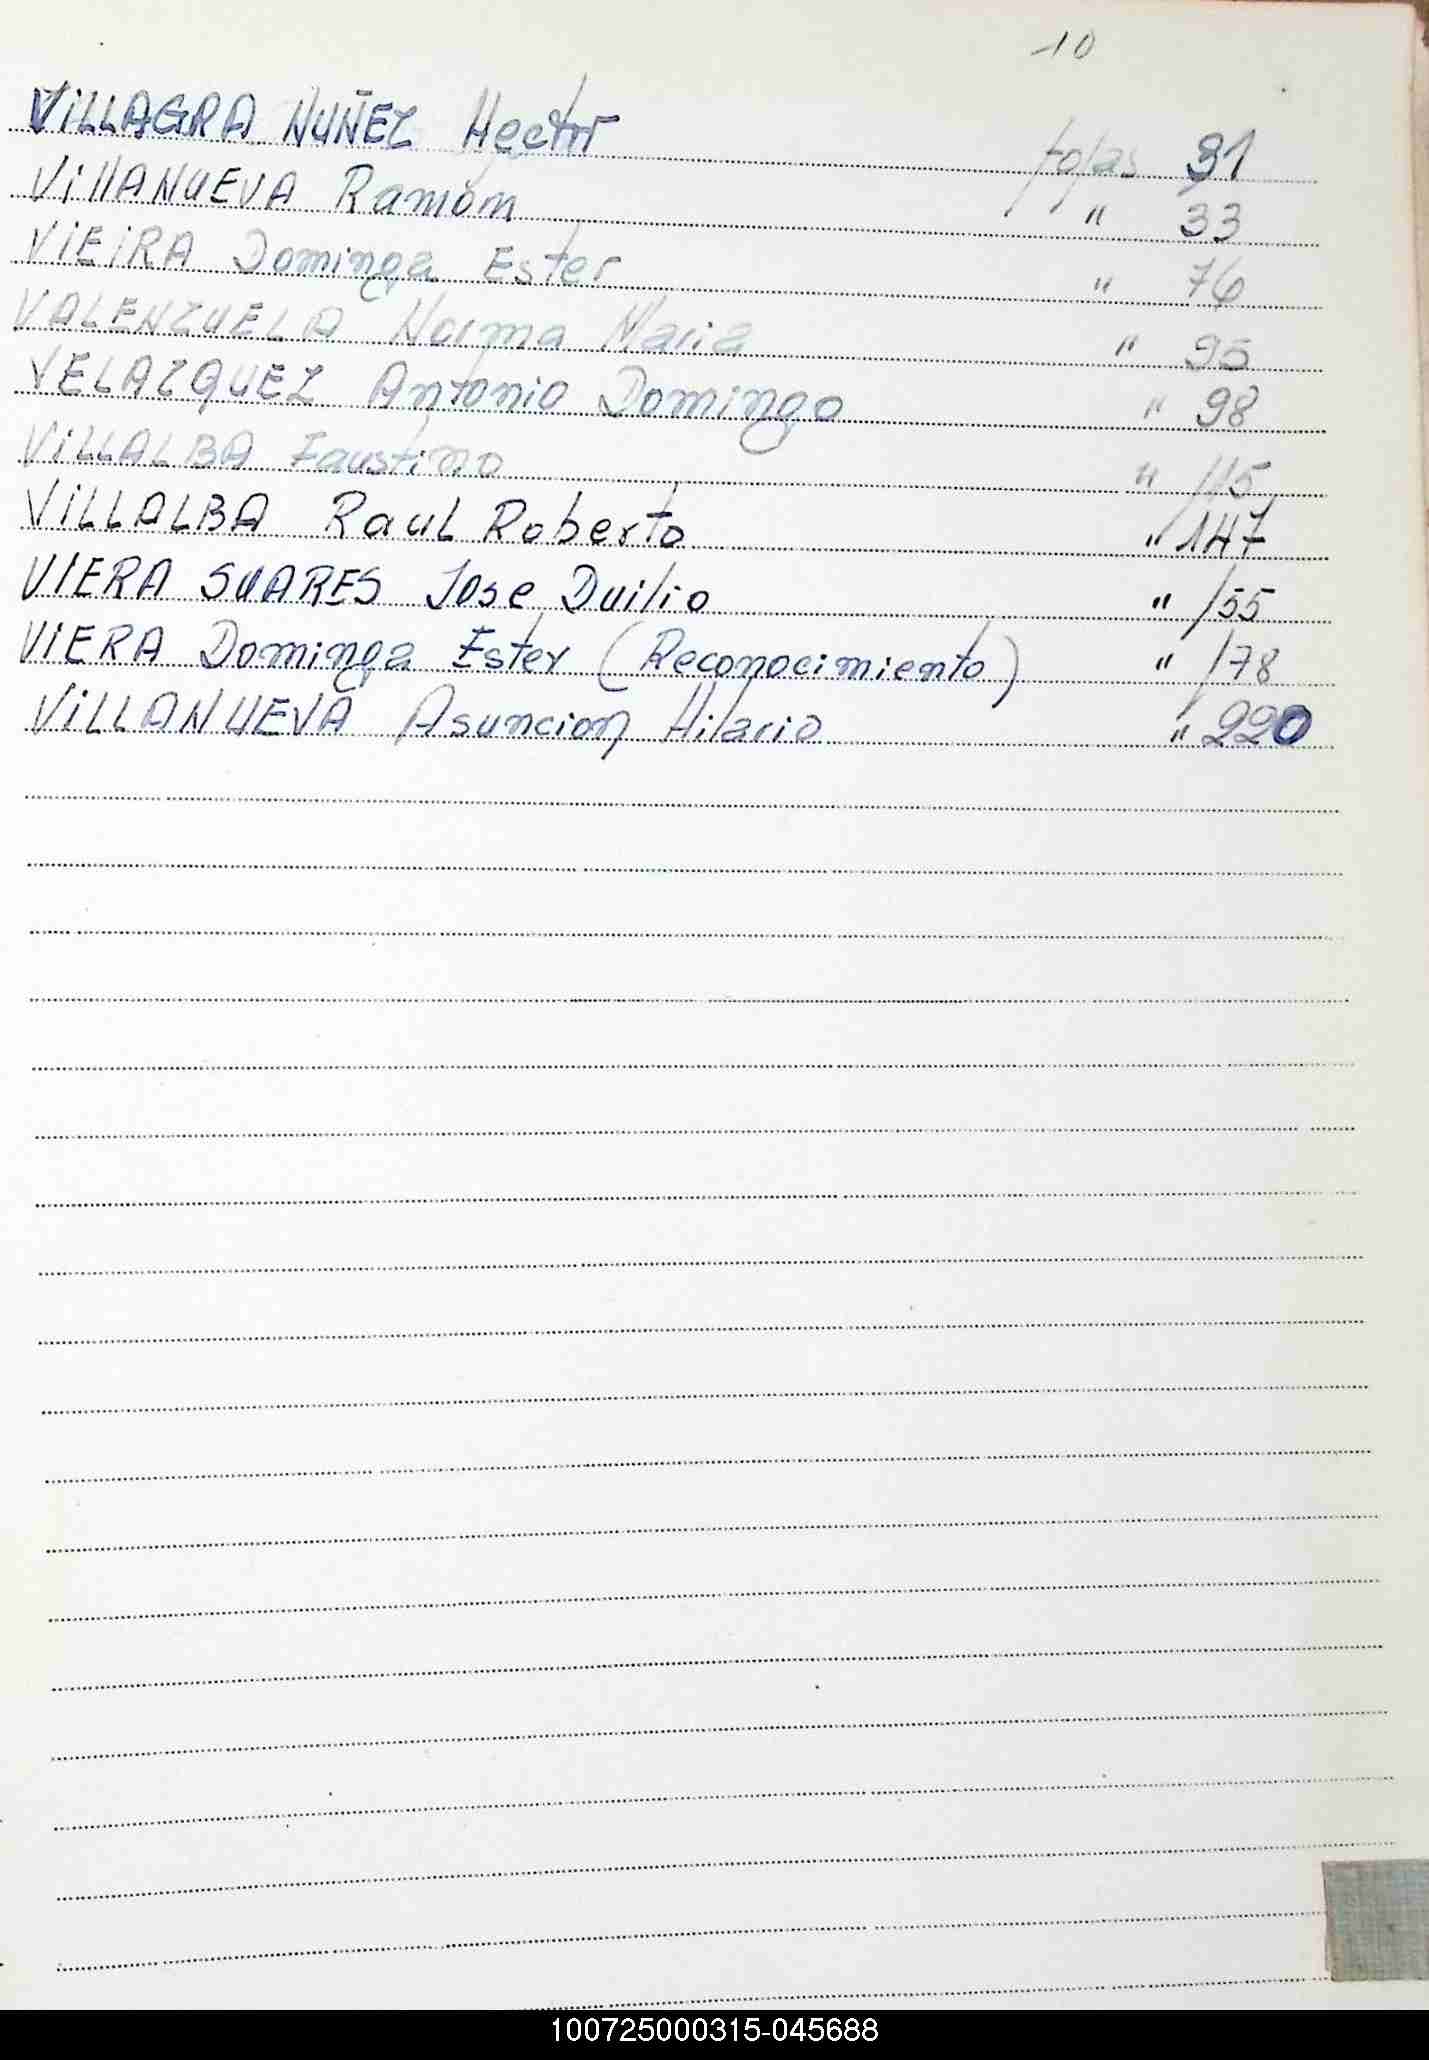 10
VILLAGRA NUÑEZ Hector fojas 31
VIllANUEVA Ramón " 33
VIEIRA Dominga Ester " 76
VALENZUELA Norma Maria " 95
VELAZQUEZ Antonio Domingo " 98
VILLALBA Faustino " 115
VILLALBA Raul Roberto " 147
VIERA SUARES Jose Duilio " 155
VIERA Dominga Ester (Reconocimiento) " 178
VILLANUEVA Asuncion Hilario " 220
100725000315-045688